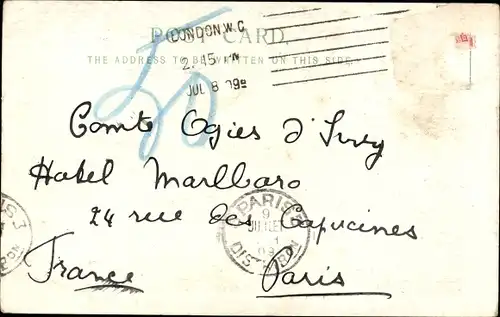 POST CARD.
THE ADDRESS TO BE WRITTEN ON THIS SIDE.
LONDON.W.C.
2.45 PM
JUL 8 09
50
Comte Ogies d'Ivry
Hotel Marlbaro
24 rue des Capucines
France Paris
PARIS 3
9
JUILLET
09
DISTRIBON
IS 3
ON